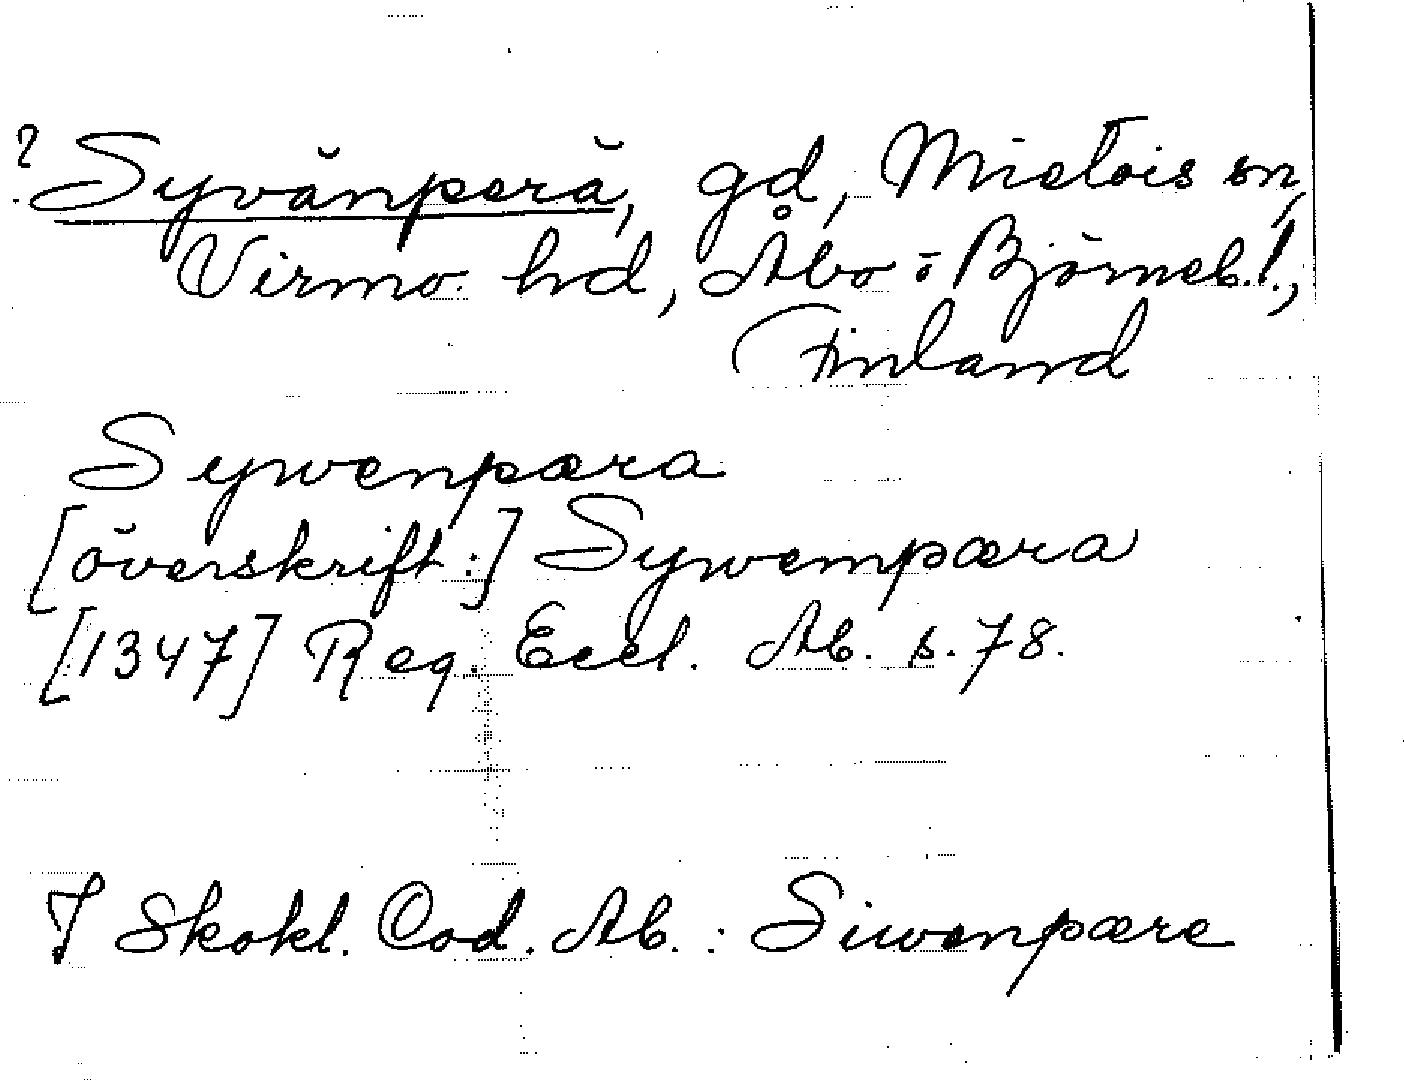 ? Syvänperä, gd, Mietois sn,
Virmo hd, Åbo o Björneb. l.,
Finland
Sywenpæra
[överskrift:] Sywempæra
[1347] Reg. Eccl. Ab. s. 78.
I Skokl. Cod. Ab. : Siwenpære